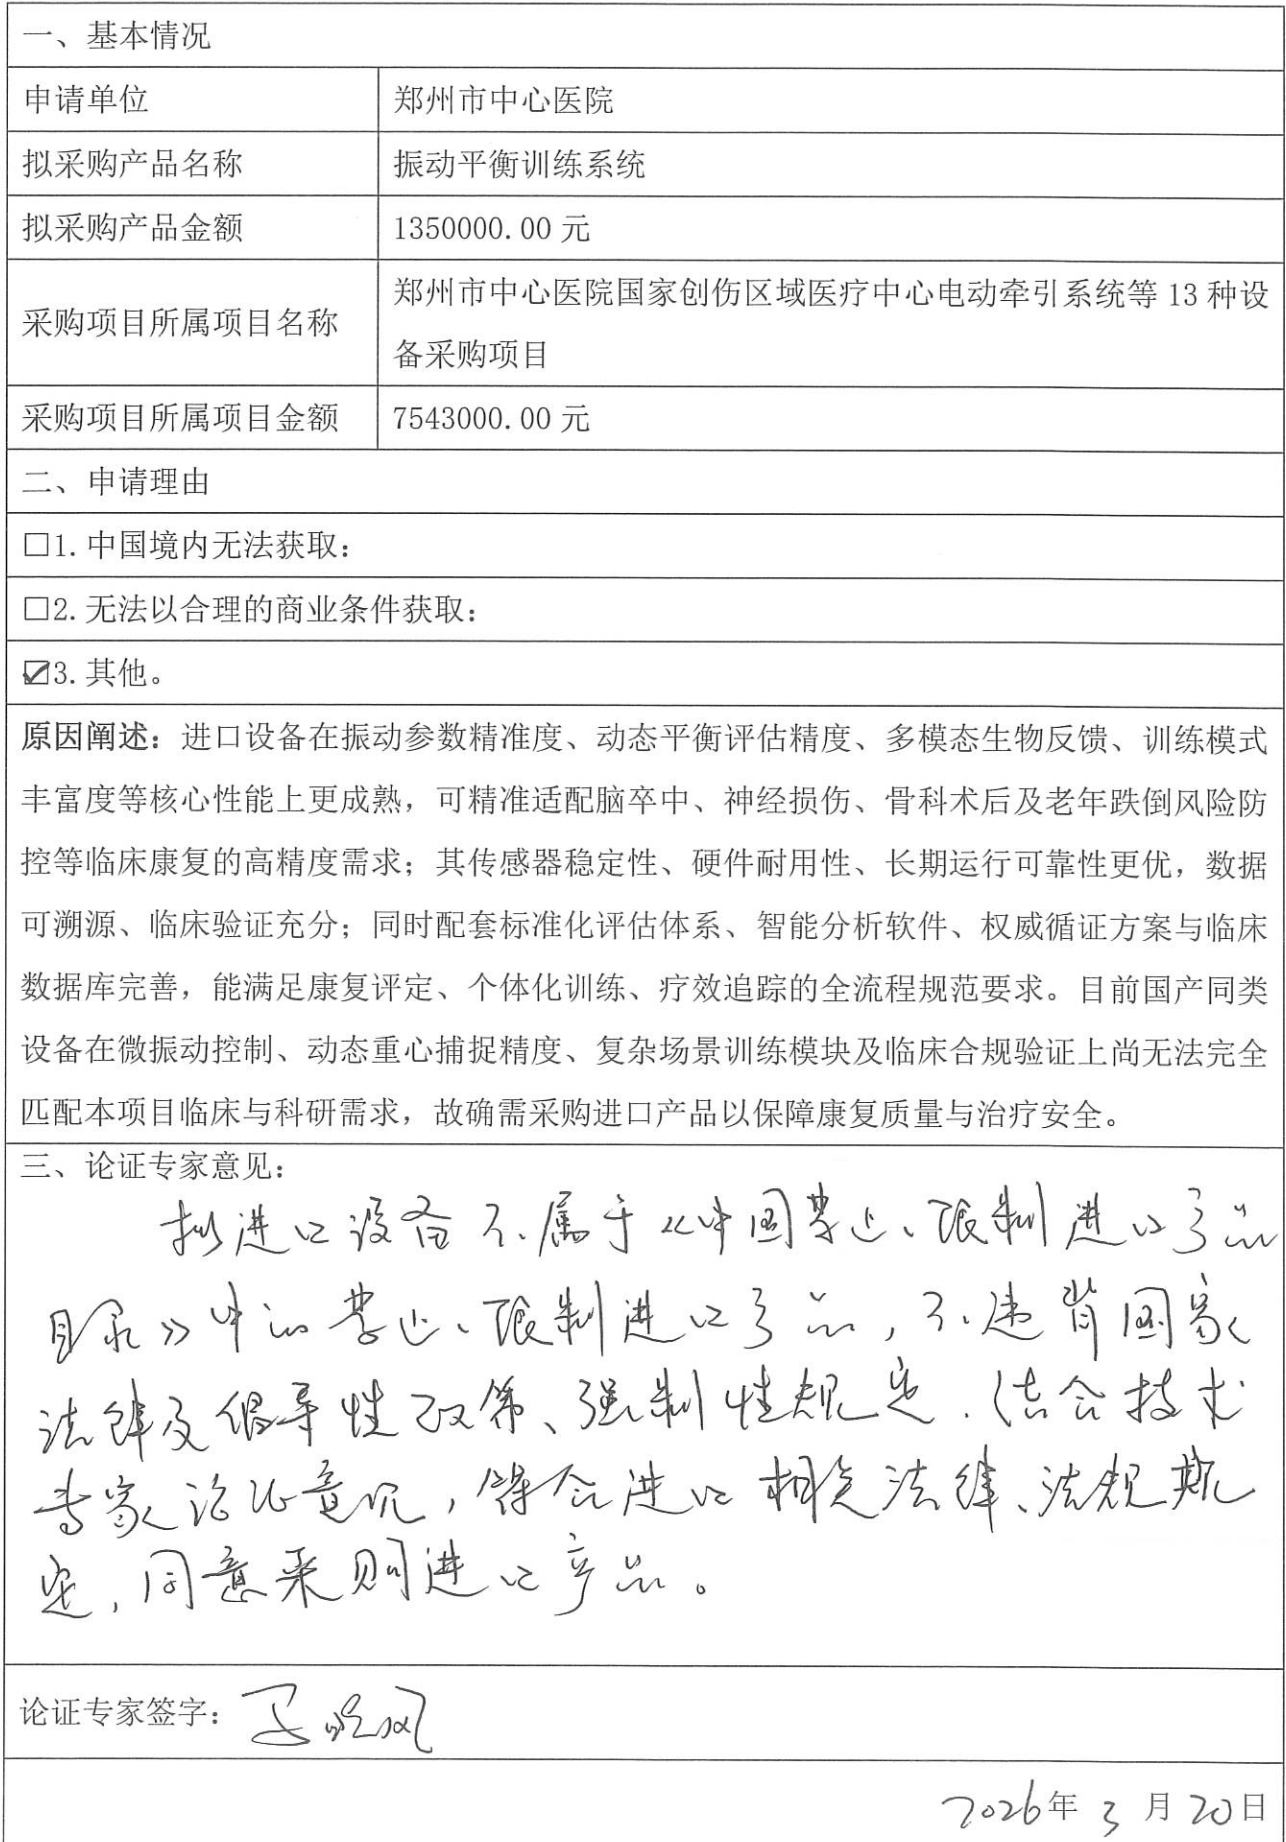 一、基本情况
申请单位 郑州市中心医院
拟采购产品名称 振动平衡训练系统
拟采购产品金额 1350000.00 元
采购项目所属项目名称 郑州市中心医院国家创伤区域医疗中心电动牵引系统等 13 种设
备采购项目
采购项目所属项目金额 7543000.00 元
二、申请理由
☐1. 中国境内无法获取：
☐2. 无法以合理的商业条件获取：
☑3. 其他。
原因阐述：进口设备在振动参数精准度、动态平衡评估精度、多模态生物反馈、训练模式
丰富度等核心性能上更成熟，可精准适配脑卒中、神经损伤、骨科术后及老年跌倒风险防
控等临床康复的高精度需求；其传感器稳定性、硬件耐用性、长期运行可靠性更优，数据
可溯源、临床验证充分；同时配套标准化评估体系、智能分析软件、权威循证方案与临床
数据库完善，能满足康复评定、个体化训练、疗效追踪的全流程规范要求。目前国产同类
设备在微振动控制、动态重心捕捉精度、复杂场景训练模块及临床合规验证上尚无法完全
匹配本项目临床与科研需求，故确需采购进口产品以保障康复质量与治疗安全。
三、论证专家意见：
拟进口设备不属于《中国禁止、限制进口产品
目录》中的禁止、限制进口产品，不违背国家
法律及倡导性政策、强制性规定．结合技术
专家论证意见，符合进口相关法律、法规规
定，同意采购进口产品。
论证专家签字：
2026年 3 月 20日